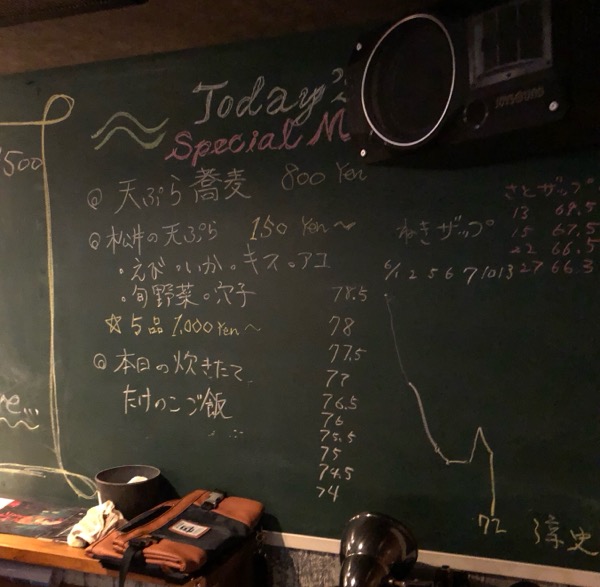 Today's
Special M
JOYSOUND
500
◎ 天ぷら蕎麦 800 Yen
◎ 松井の天ぷら 150 Yen〜
・えび・いか・キス・アユ
・旬野菜・穴子
☆5品 1,000 Yen〜
◎ 本日の炊きたて
たけのこご飯
re...
ねぎザップ
6/1 2 5 6 7 10 13
78.5
78
77.5
77
76.5
76
75.5
75
74.5
74
72
さとザップ
13 68.5
15 67.5
22 66.5
27 66.3